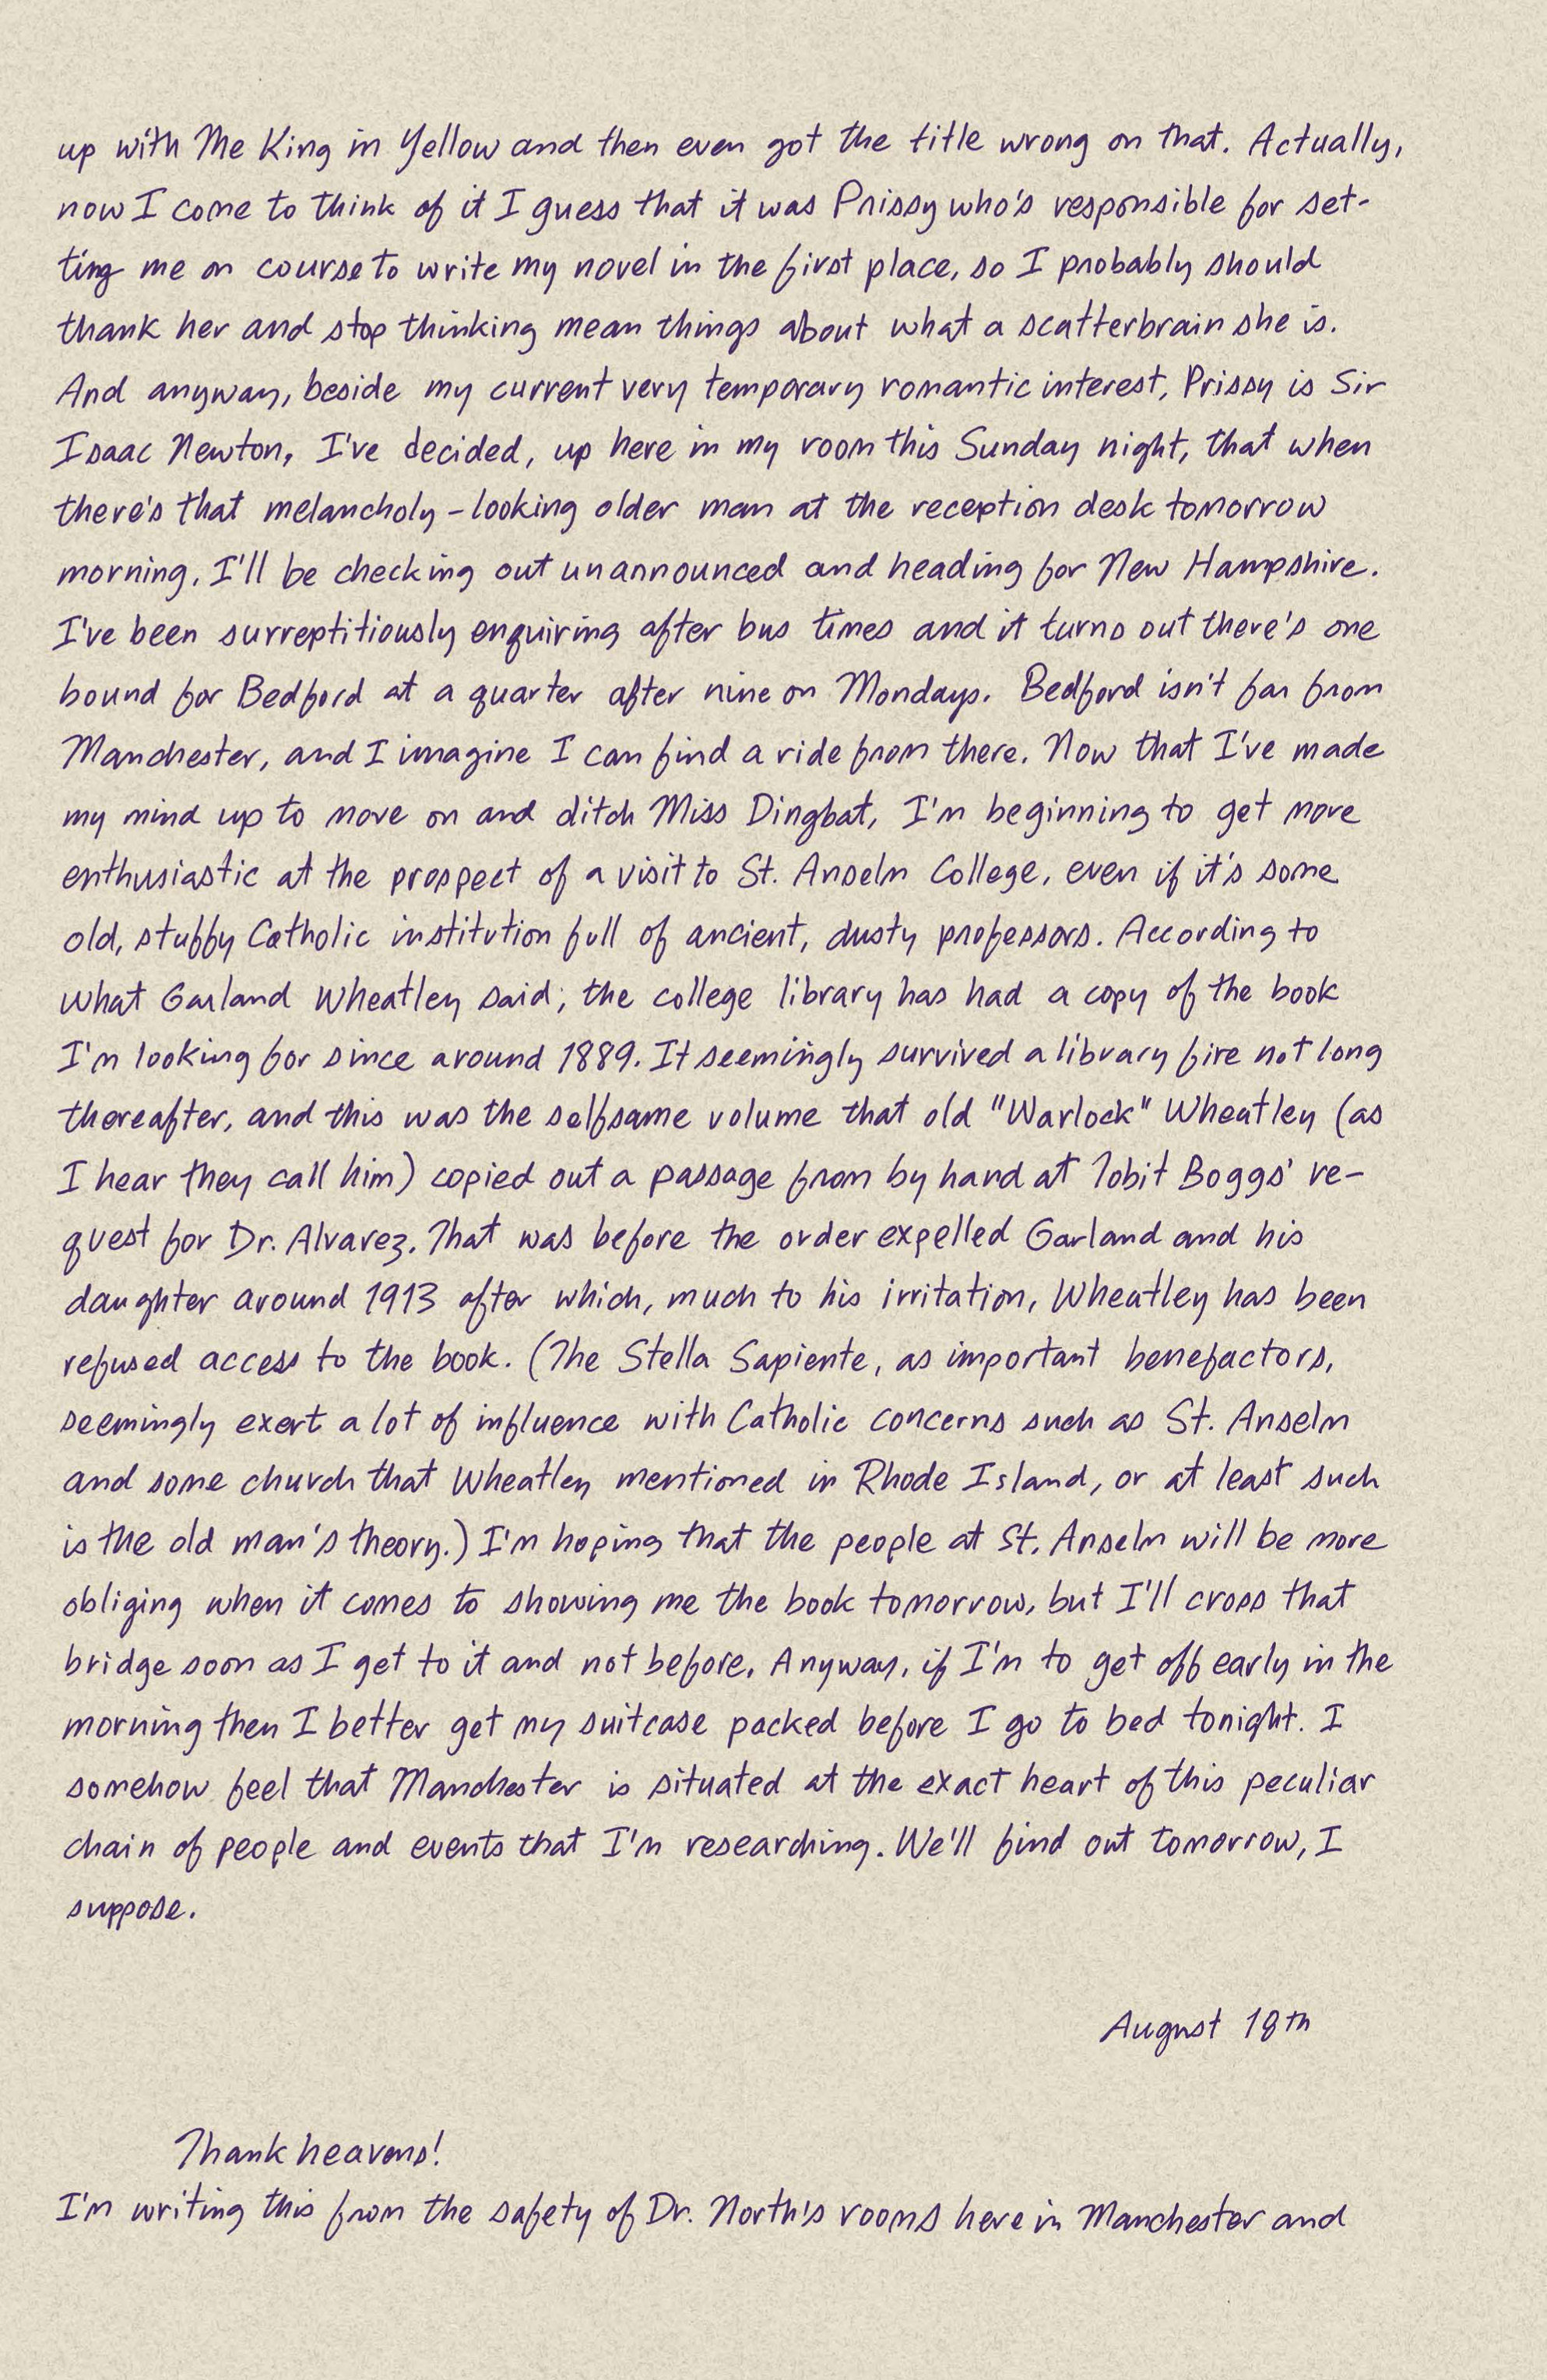 up with The King in Yellow and then even got the title wrong on that. Actually,
now I come to think of it I guess that it was Prissy who's responsible for set-
ting me on course to write my novel in the first place, so I probably should
thank her and stop thinking mean things about what a scatterbrain she is.
And anyway, beside my current very temporary romantic interest, Prissy is Sir
Isaac Newton, I've decided, up here in my room this Sunday night, that when
there's that melancholy-looking older man at the reception desk tomorrow
morning, I'll be checking out unannounced and heading for New Hampshire.
I've been surreptitiously enquiring after bus times and it turns out there's one
bound for Bedford at a quarter after nine on Mondays. Bedford isn't far from
Manchester, and I imagine I can find a ride from there. Now that I've made
my mind up to move on and ditch Miss Dingbat, I'm beginning to get more
enthusiastic at the prospect of a visit to St. Anselm College, even if it's some
old, stuffy Catholic institution full of ancient, dusty professors. According to
what Garland Wheatley said, the college library has had a copy of the book
I'm looking for since around 1889. It seemingly survived a library fire not long
thereafter, and this was the selfsame volume that old "Warlock" Wheatley (as
I hear they call him) copied out a passage from by hand at Tobit Boggs' re-
quest for Dr. Alvarez. That was before the order expelled Garland and his
daughter around 1913 after which, much to his irritation, Wheatley has been
refused access to the book. (The Stella Sapiente, as important benefactors,
seemingly exert a lot of influence with Catholic concerns such as St. Anselm
and some church that Wheatley mentioned in Rhode Island, or at least such
is the old man's theory.) I'm hoping that the people at St. Anselm will be more
obliging when it comes to showing me the book tomorrow, but I'll cross that
bridge soon as I get to it and not before. Anyway, if I'm to get off early in the
morning then I better get my suitcase packed before I go to bed tonight. I
somehow feel that Manchester is situated at the exact heart of this peculiar
chain of people and events that I'm researching. We'll find out tomorrow, I
suppose.
August 18th
Thank heavens!
I'm writing this from the safety of Dr. North's rooms here in Manchester and